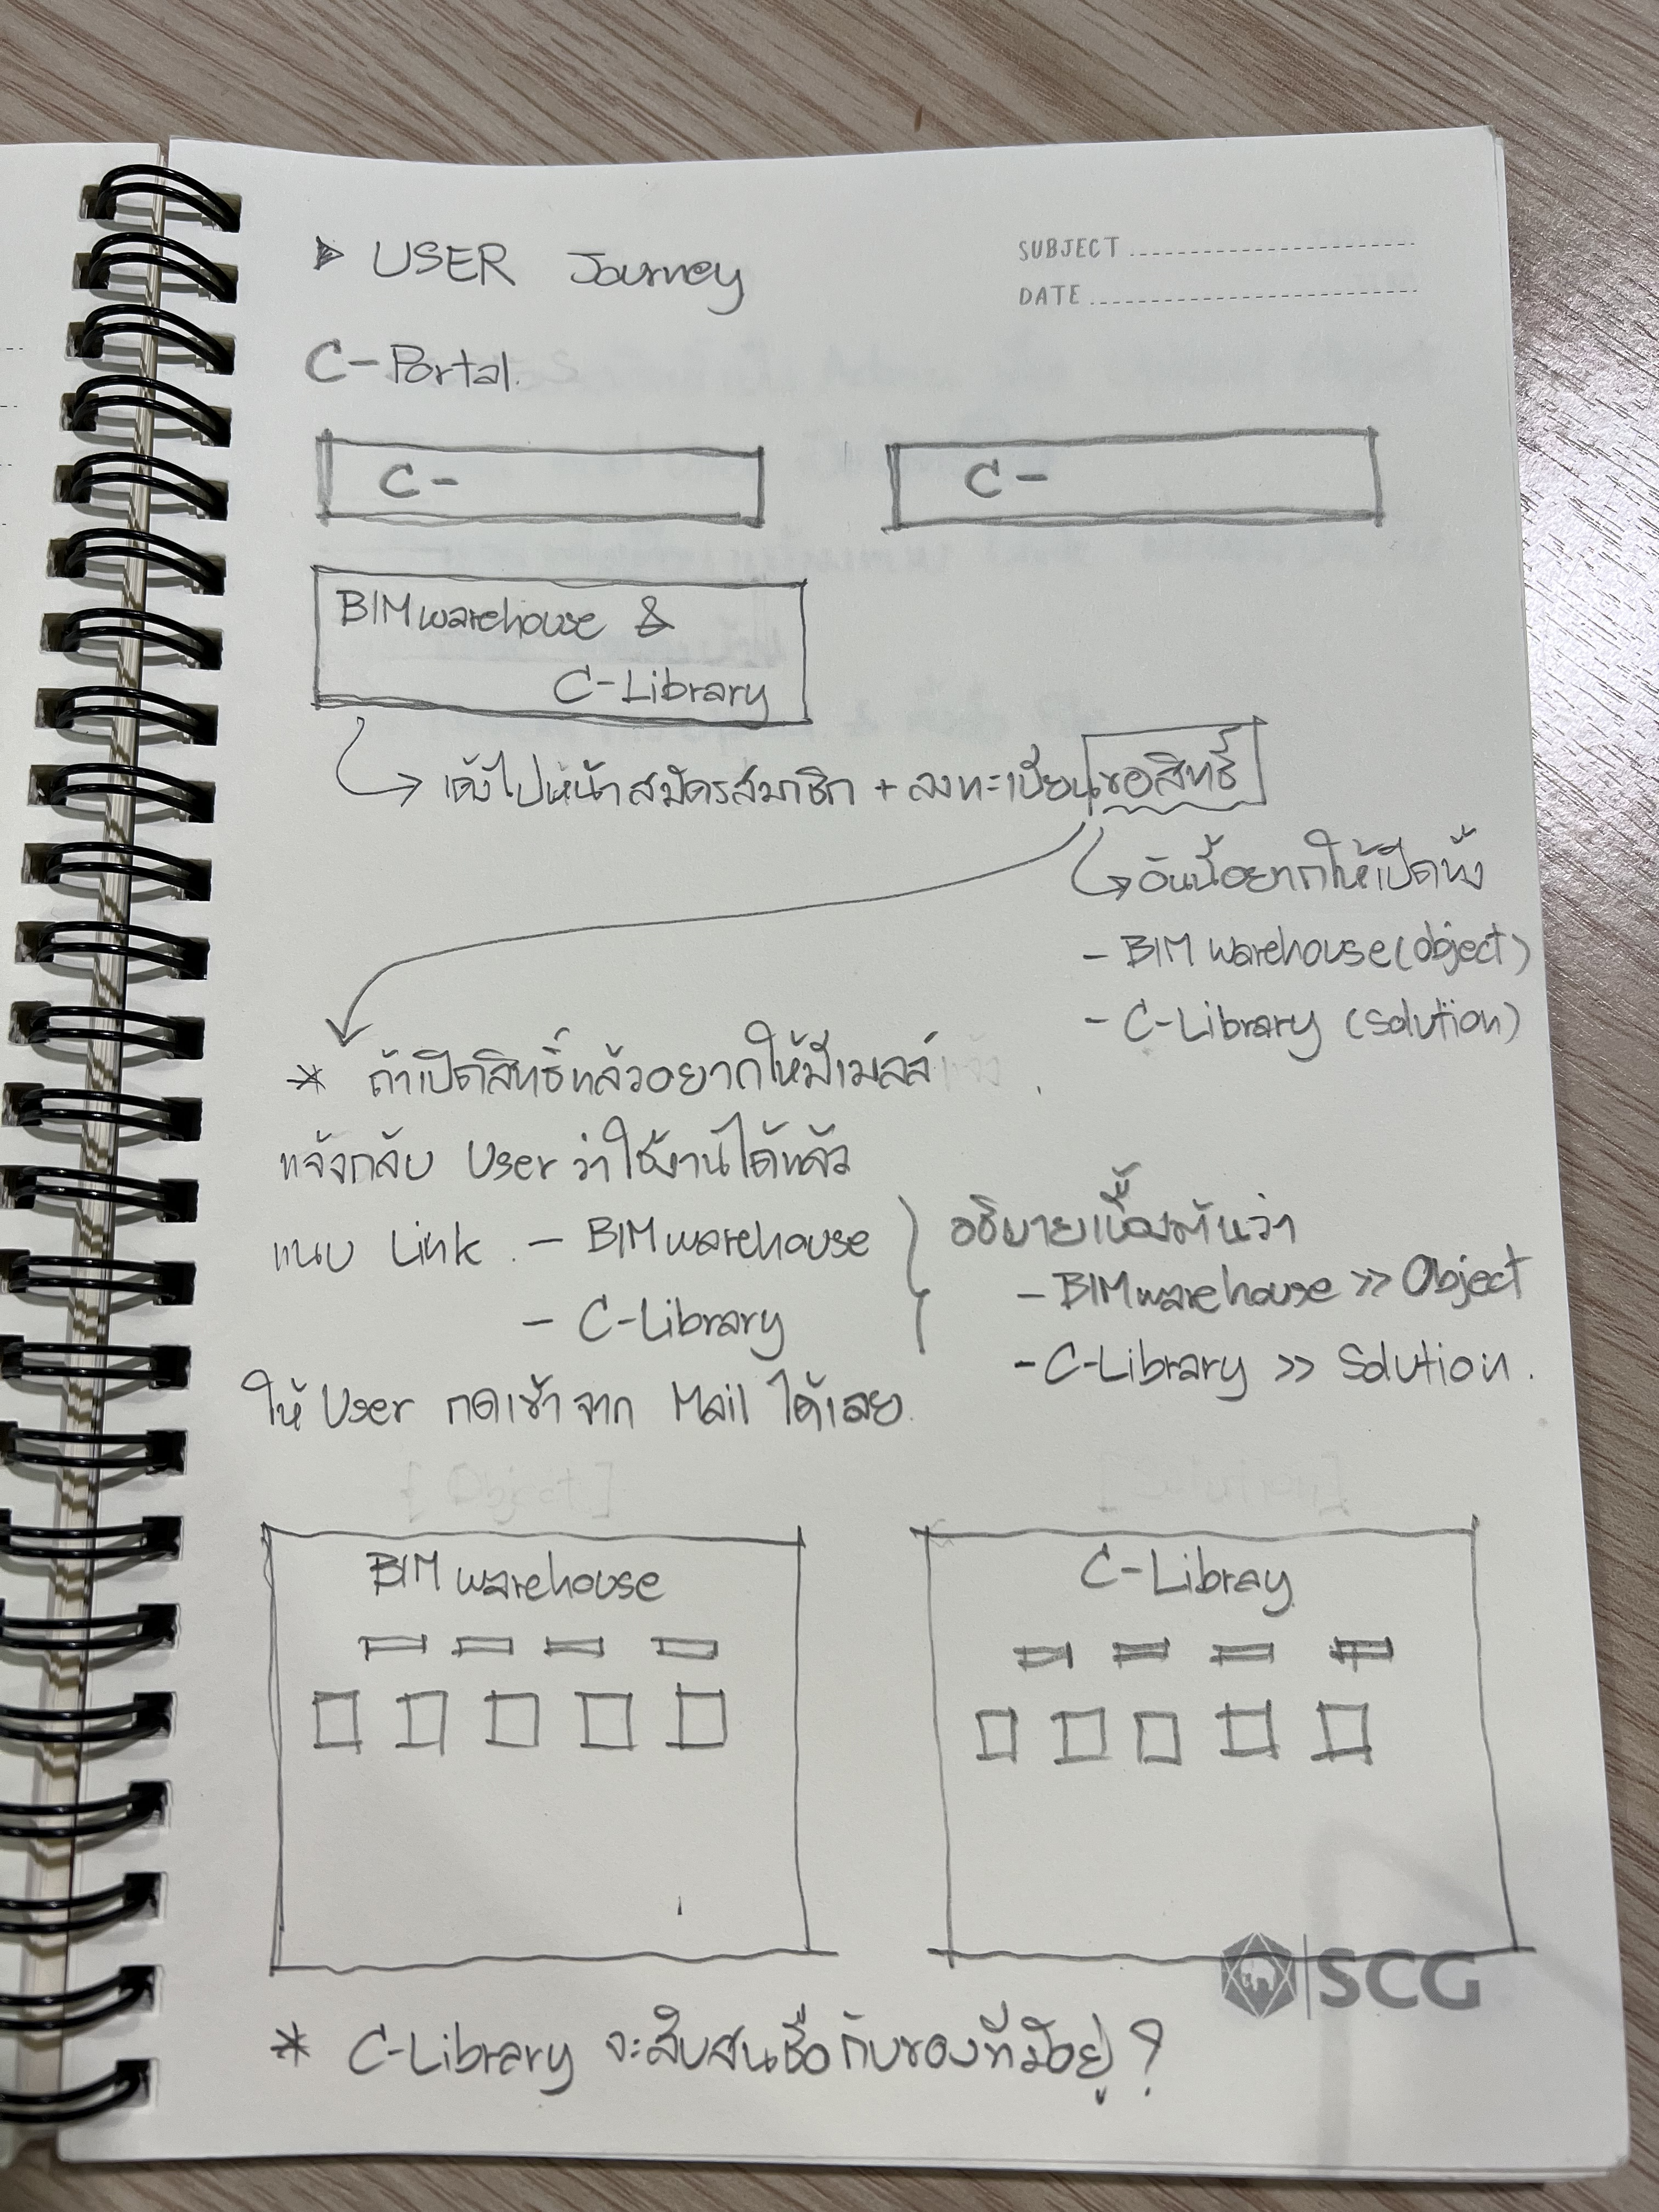 USER Journey
SUBJECT
DATE
C-Portal.
C-
C-
BIM warehouse &
C-Library
เด้งไปหน้าสมัครสมาชิก + ลงทะเบียนขอสิทธิ์
อันนี้อยากให้เปิดทั้ง
- BIM warehouse (object)
- C-Library (solution)
* ถ้าเปิดสิทธิ์แล้วอยากให้มีเมลล์
แจ้งกลับ User ว่าใช้งานได้แล้ว
แนบ Link - BIM warehouse
- C-Library
อธิบายเบื้องต้นว่า
- BIM warehouse >> Object
- C-Library >> Solution.
ให้ User กดเข้าจาก Mail ได้เลย.
BIM warehouse
C-Libray
SCG
* C-Library จะสับสนชื่อกับของที่มีอยู่ ?